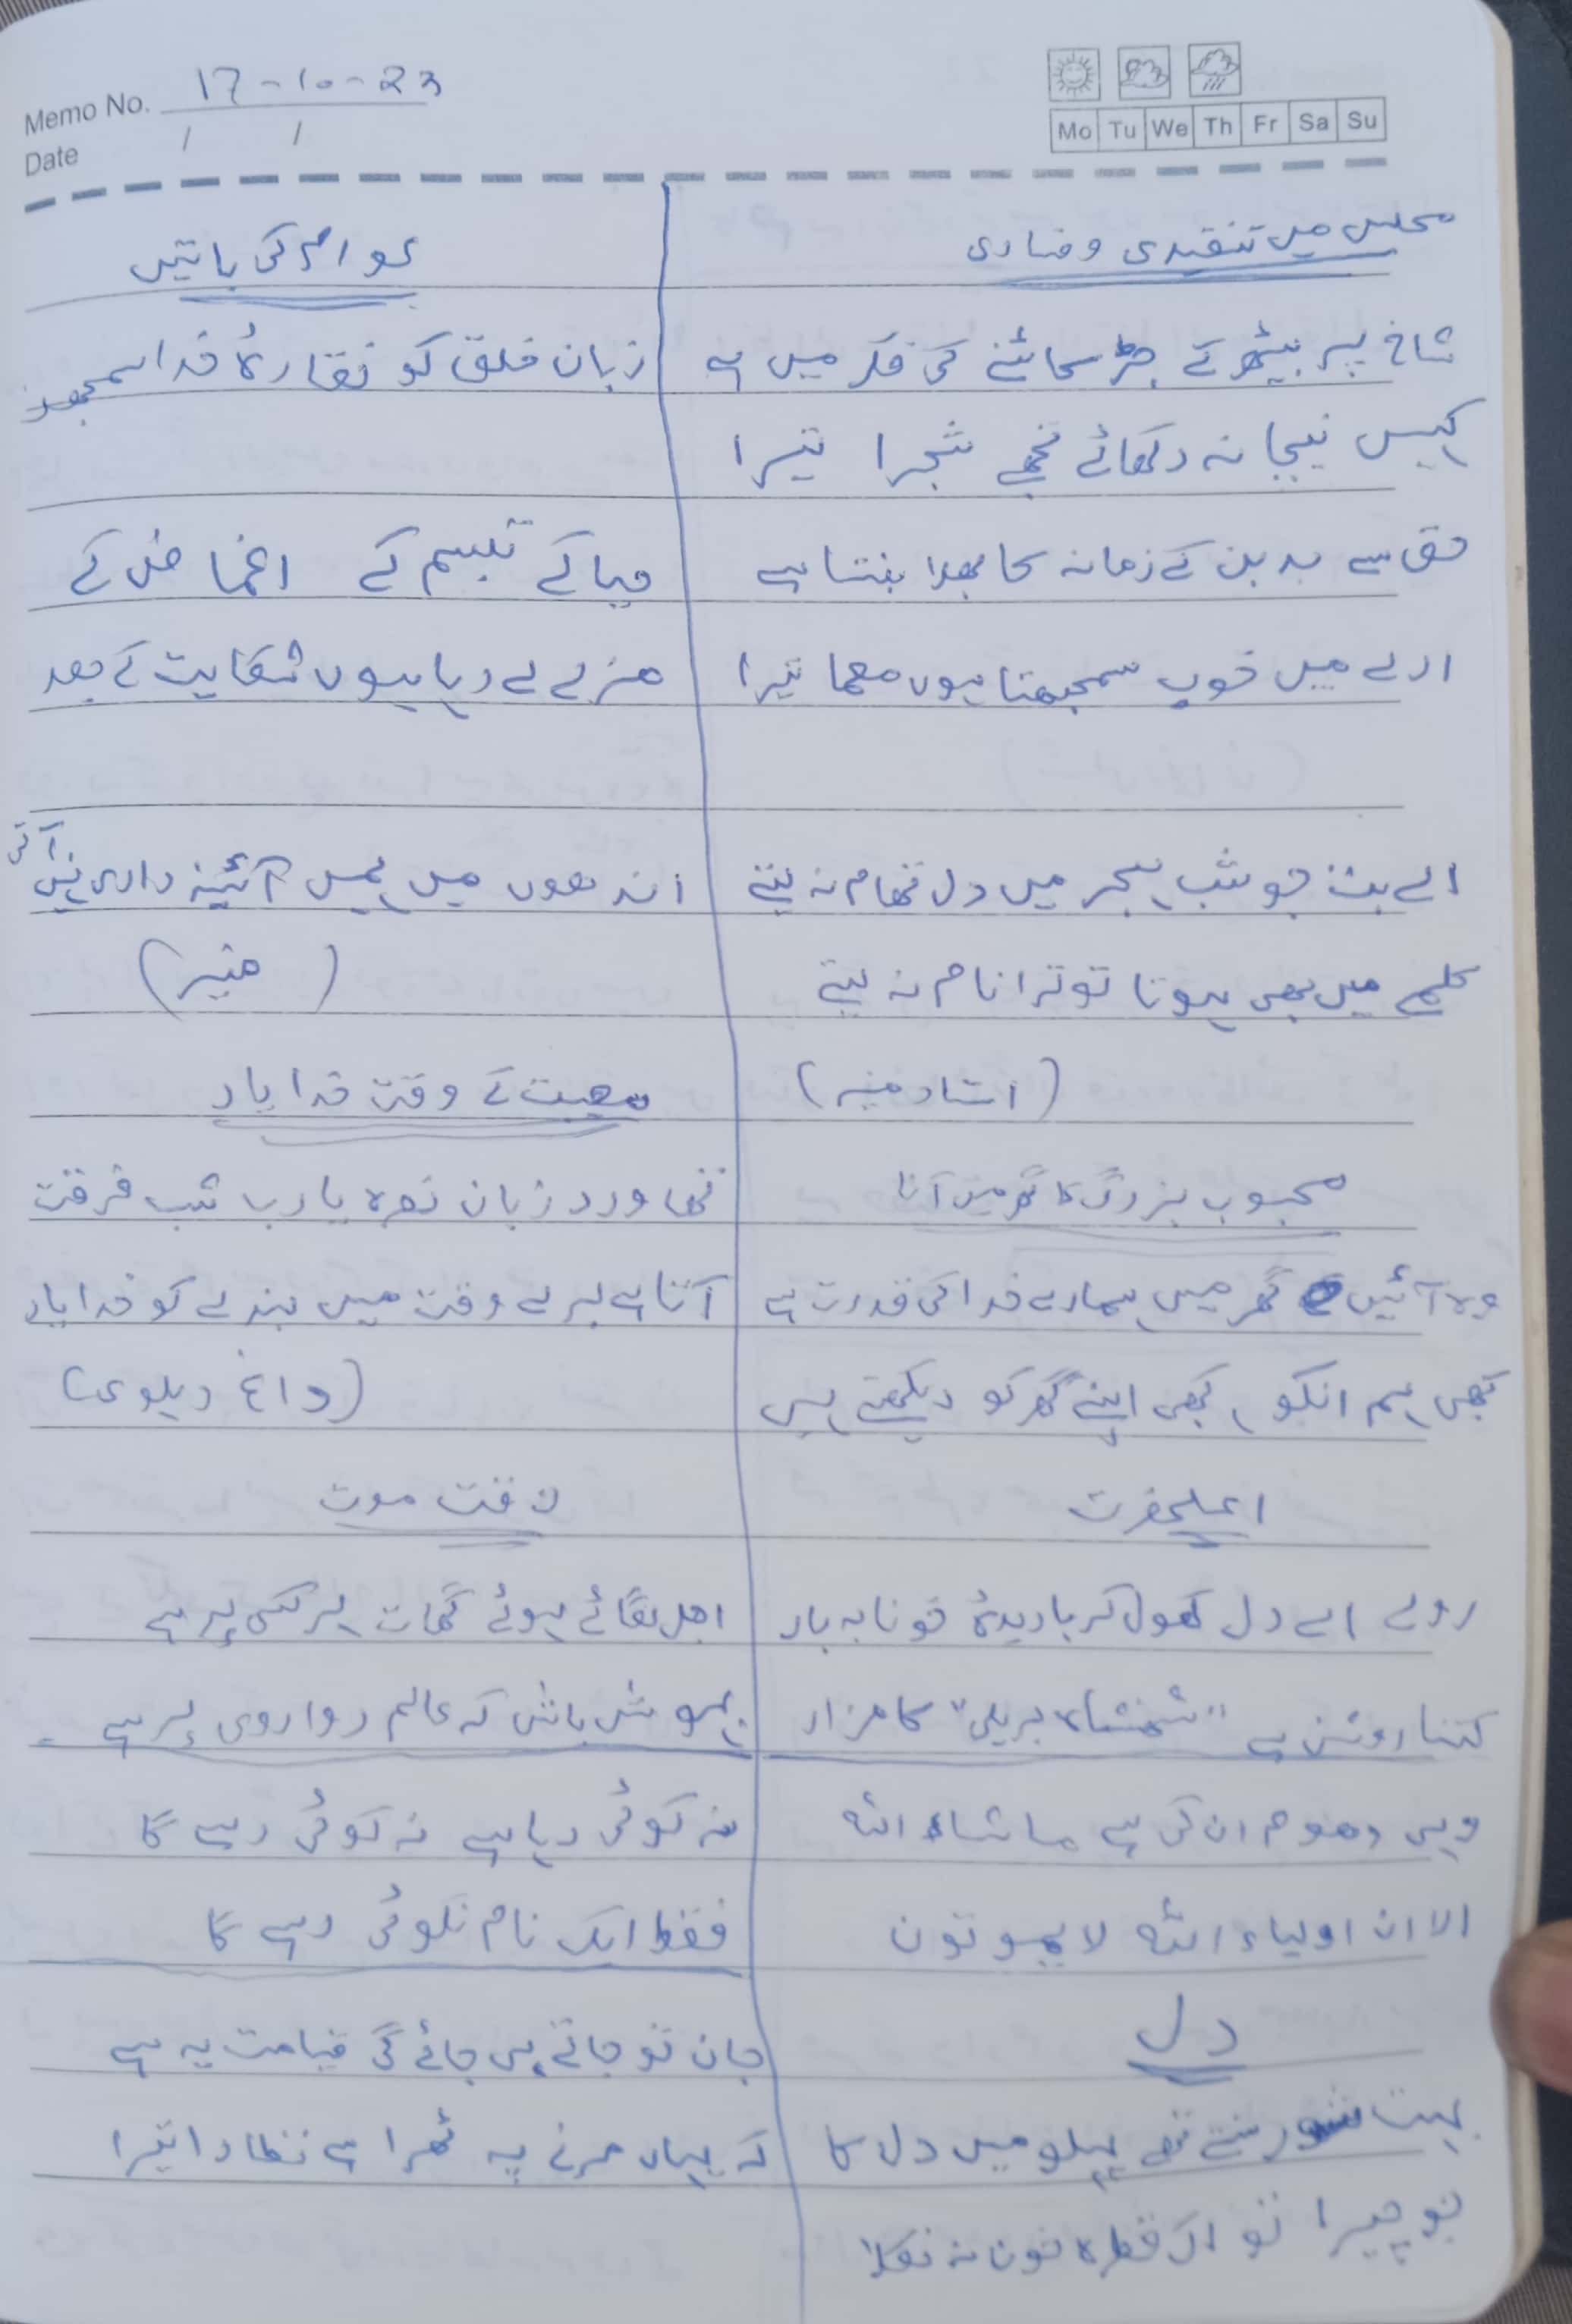 Memo No. 17-10-23
Date / /
Mo Tu We Th Fr Sa Su
مجلس میں تنقیدی و فساری
شاخ پر بیٹھ کے جڑ کاٹنے کی فکر میں ہے
کہیں نیچا نہ دکھائے تجھے شجرا تیرا
حق سے بد بن کے زمانہ کا بھلا بنتا ہے
ارے میں خوب سمجھتا ہوں معما تیرا
اے بت جو شب ہجر میں دل تھام نہ لیتے
کلمے میں بھی ہوتا تو ترا نام نہ لیتے
(استاد منیر)
محبوب بزرگ کا گھر میں آنا
وہ آئیں گھر میں ہمارے خدا کی قدرت ہے
کبھی ہم انکو، کبھی اپنے گھر کو دیکھتے ہیں
اعلیحضرت
رولے اے دل کھول کر بادیدۂ خونابہ بار
کتنا روشن ہے "شہنشاہ بریلی" کا مزار
وہی دھوم ان کی ہے ماشاء اللہ
الا ان اولیاء اللہ لا یموتون
دل
بہت شور سنتے تھے پہلو میں دل کا
جو چیرا تو اک قطرہ خون نہ نکلا
عوام کی باتیں
زبان خلق کو نقارۂ خدا سمجھو
حیا کے تبسم کے اغماض کے
مزے لے رہا ہوں شکایت کے بعد
اندھوں میں ہمیں آئینہ داری نہیں آتی
(منیر)
مصیبت کے وقت خدا یاد
تھا ورد زبان نعرہ یا رب شب فرقت
آتا ہے برے وقت میں بندے کو خدا یاد
(داغ دہلوی)
وقت موت
اجل لگائے ہوئے گھات ہر کسی پر ہے
بہوش باش کہ عالم روا روی پر ہے
نہ کوئی رہا ہے نہ کوئی رہے گا
فقط ایک نام نکوئی رہے گا
جان تو جاتے ہی جائے گی قیامت یہ ہے
کہ یہاں مرنے پہ ٹھرا ہے نظارا تیرا